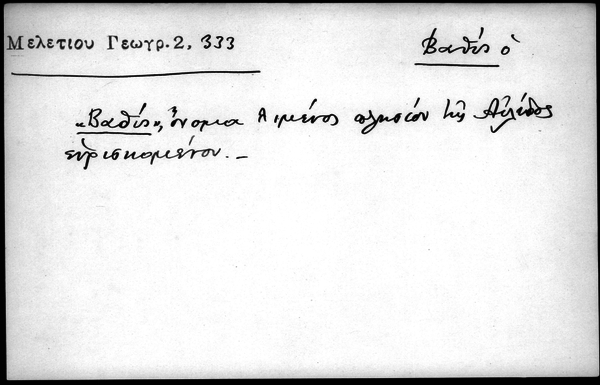 Μελετίου Γεωγρ. 2, 333
Βαθύς ὁ
«Βαθύς», ὄνομα λιμένος πλησίον τῆς Αὐλίδος
εὑρισκομένου. —